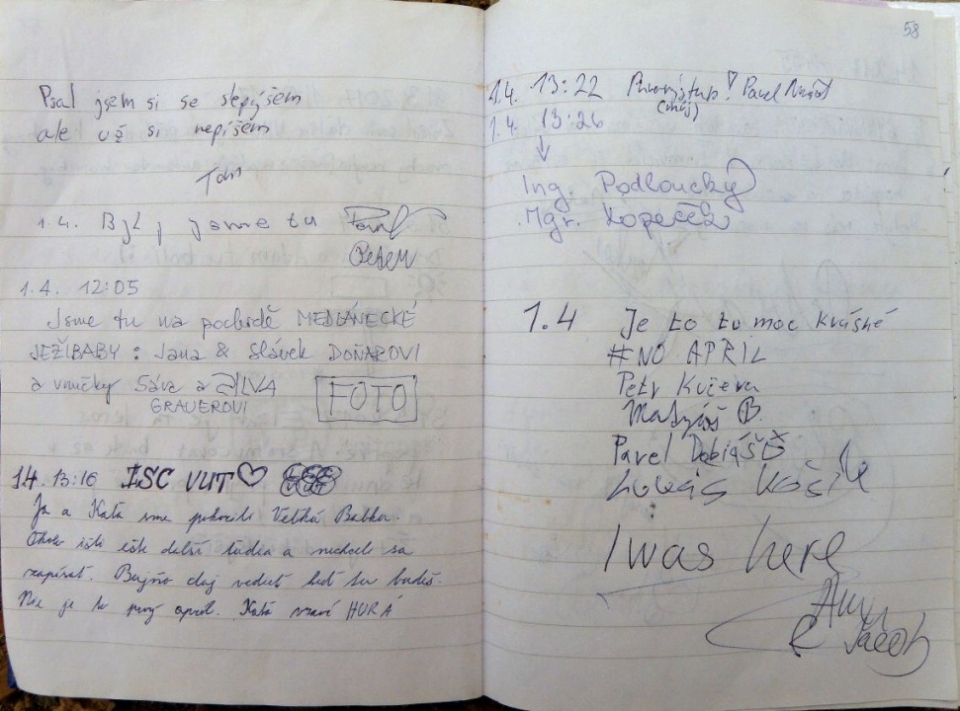 Psal jsem si se slepýšem
ale už si nepíšem
Tom
1.4. Byli jsme tu Pavel
1.4. 12:05
Jsme tu na pochodě MEDLÁNECKÉ
JEŽIBABY: Jana & Slávek DOŇAROVI
a vnučky Sáva a
GRAUEROVI
FOTO
1.4. 13:16 ISC VUT
Ja a Kaťa sme pokorili Veľkú Babku.
išli ešte ďalší ľudia a nechceli sa
zapísať. daj vedieť keď tu budeš.
Nie je to prvý apríl. Kaťa vraví HURÁ
58
1.4. 13:22 Prvovýstup! Pavel
(můj)
1.4. 13:26
Ing. Podloucky
Mgr. Kopeček
1.4 Je to tu moc krásné
#NO APRIL
Petr Kučera
Matyáš B.
Pavel Dobiáš
Lukáš Košík
I was here
Jacob